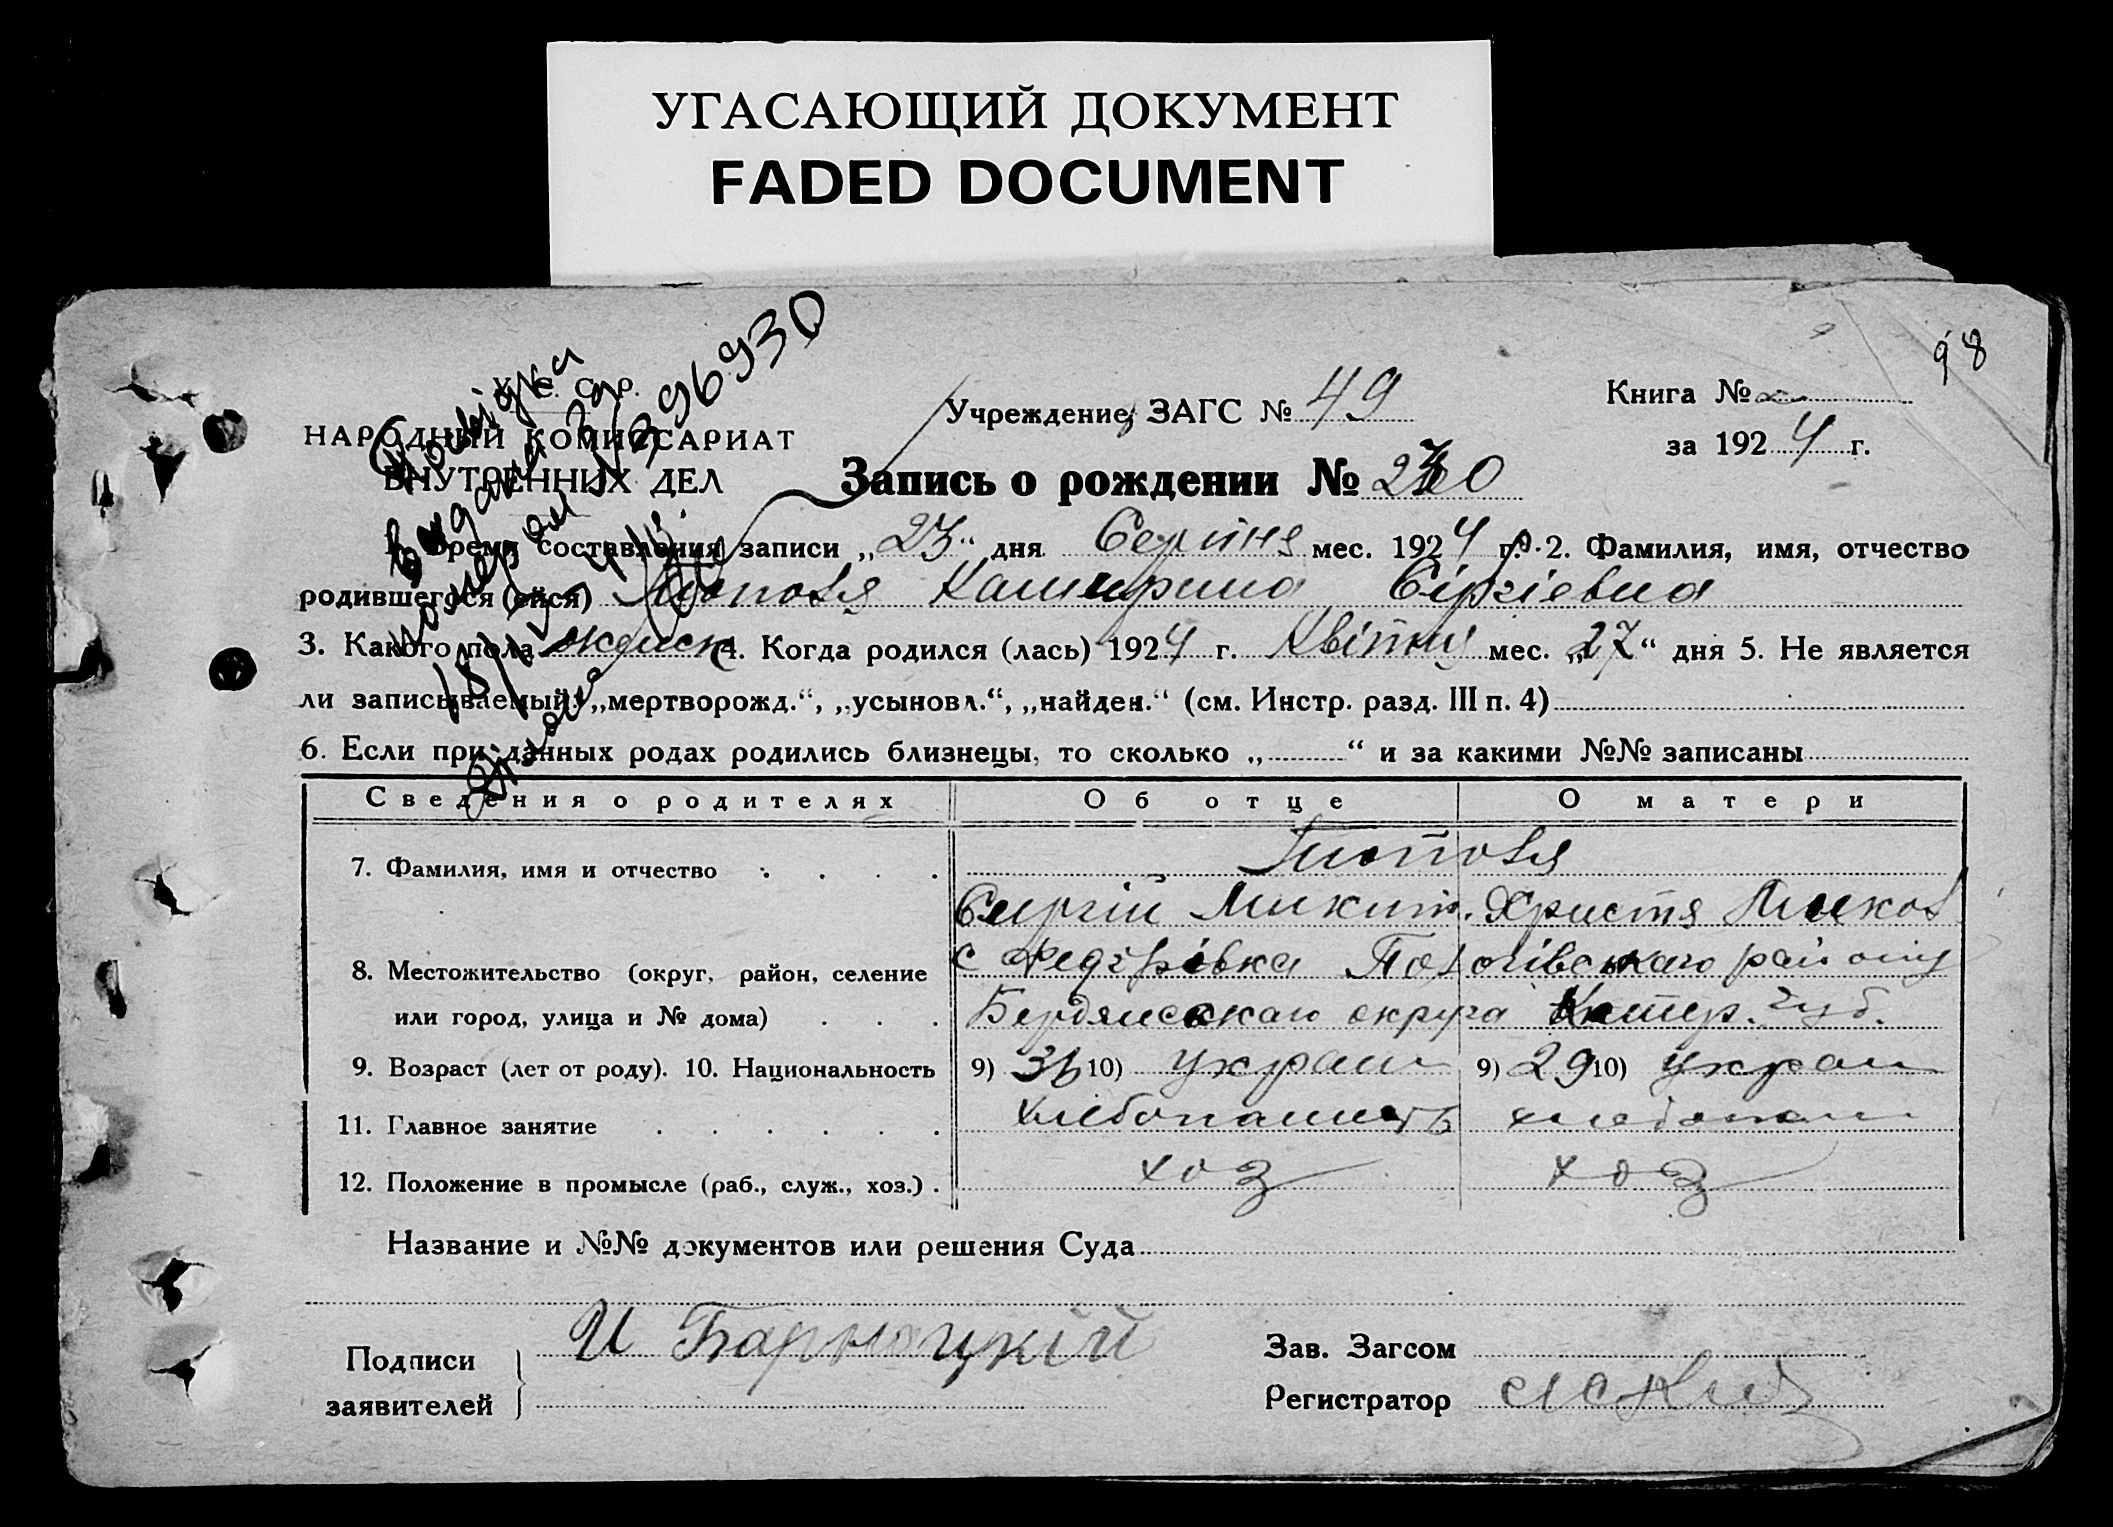 УГАСАЮЩИЙ ДОКУМЕНТ
FADED DOCUMENT
98
У. С. С. Р.
НАРОДНЫЙ КОМИССАРИАТ
ВНУТРЕННИХ ДЕЛ
Довідка
видана за
номером
396930
Учреждение ЗАГС № 49
Книга №
за 1924 г.
Запись о рождении №
1. Время составления записи „23“ дня Серпня мес. 1924 г. 2. Фамилия, имя, отчество
родившегося (ейся) Катерина Сергіевна
3. Какого пола женск 4. Когда родился (лась) 1924 г. Квітня мес. „27“ дня 5. Не является
ли записываемый: „мертворожд.“, „усыновл.“, „найден.“ (см. Инстр. разд. III п. 4)
6. Если при данных родах родились близнецы, то сколько „ “ и за какими №№ записаны
Сведения о родителях Об отце О матери
7. Фамилия, имя и отчество
Сергій Микит. Христя
8. Местожительство (округ, район, селение с Федорівка Пологівського району
или город, улица и № дома) Бердянского округа Катер. губ.
9. Возраст (лет от роду). 10. Национальность 9) 10) украин 9) 29 10) украин
11. Главное занятие хлебопашець хлебопаш
12. Положение в промысле (раб., служ., хоз.) хоз хоз
Название и №№ документов или решения Суда
Подписи
заявителей
И
Зав. Загсом
Регистратор